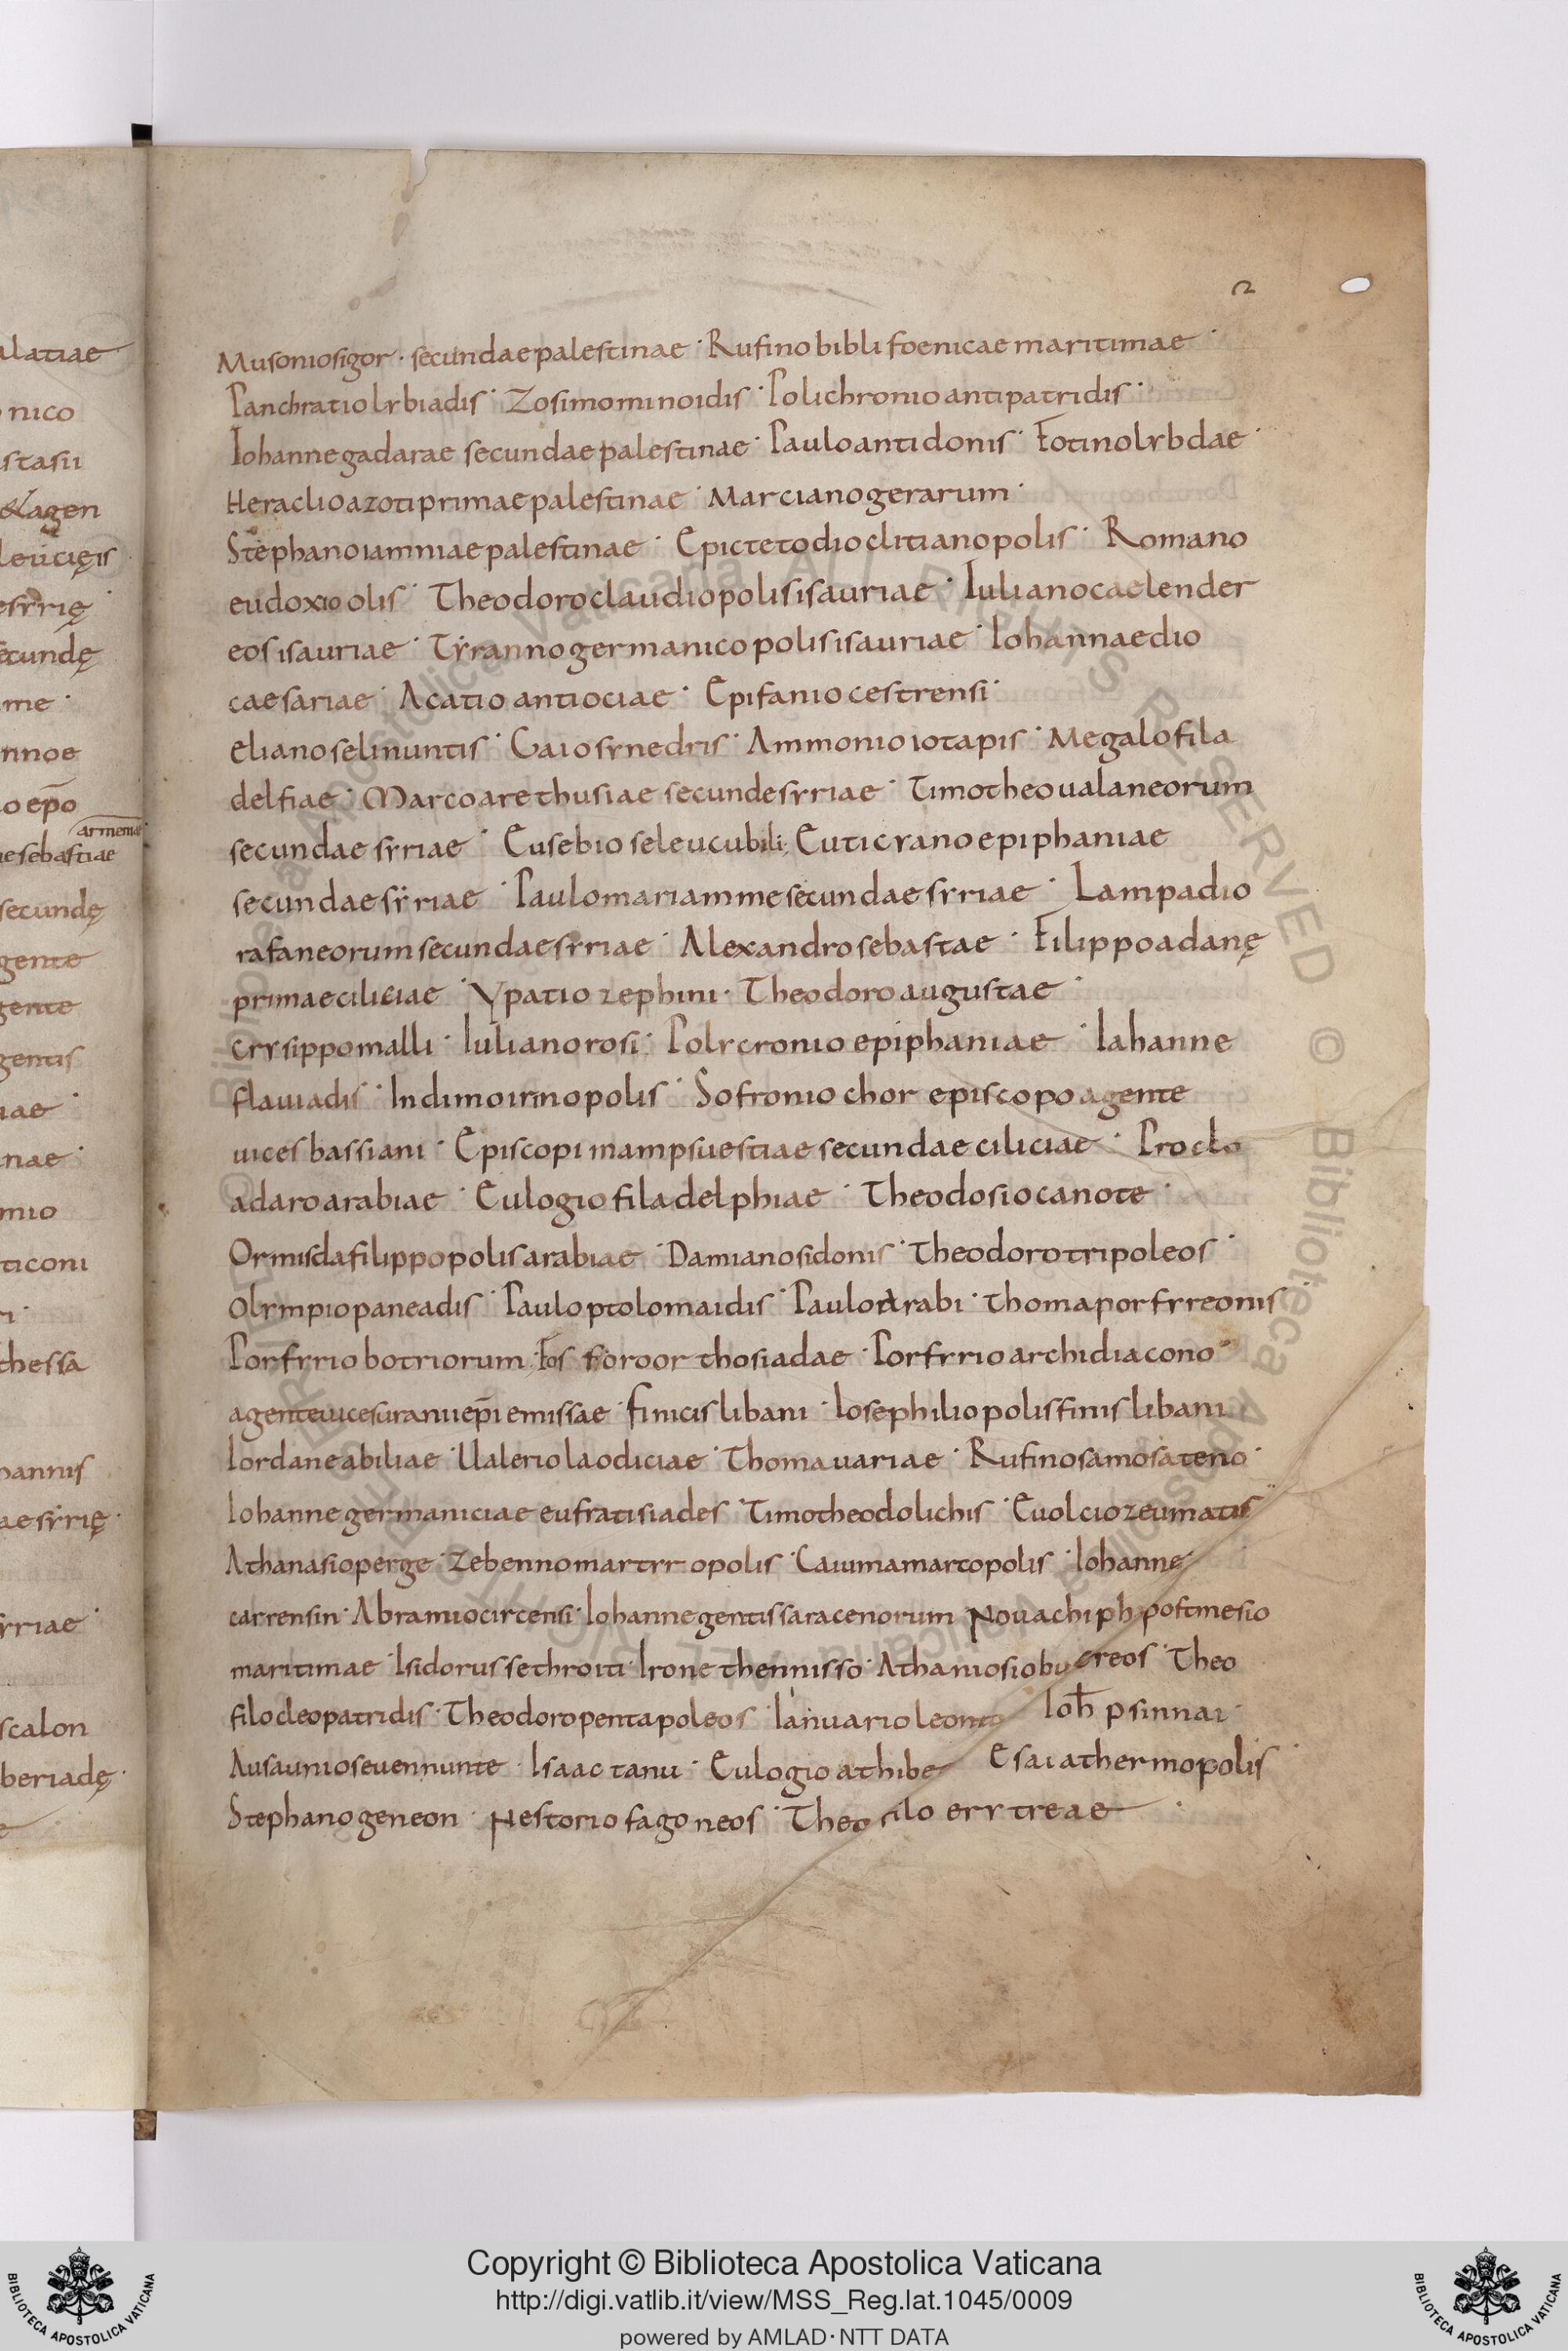 alatiae
nico
stasii
& agen
leucięis
esyrię
ecundę
me ·
nnoe
o ep̄o
armeniae
ae sebastiae
secundę
gente
gente
gentis
iae ·
nae ·
mio
ticoni
thessa
hannis
aesyrię ·
yriae ·
scalon
beriadę ·
2
Musoniosigor · secundaepalestinae · Rufinobibli foenicae maritimae ·
Panchratiolybiadis · Zosimominoidis · Polichronioantipatridis ·
Iohannegadarae secundaepalestinae · Pauloantidonis · Fotinolybdae ·
Heraclioazotiprimaepalestinae · Marcianogerarum ·
Stephanoiamniaepalestinae · Epictetodioclitianopolis · Romano
eudoxioolis · Theodoroclaudiopolisisauriae · Iulianocaelender
eosisauriae · Tyrannogermanicopolisisauriae · Iohannaedio
caesariae · Acatio antiociae · Epifanio cestrensi ·
elianoselinuntis · Gaiosynedris · Ammonioiotapis · Megalofila
delfiae · Marcoarethusiae secundesyriae · Timotheoualaneorum
secundae syriae · Eusebio seleucubili; Euticyranoepiphaniae
secundaesyriae · Paulomariammesecundaesyriae · Lampadio
rafaneorumsecundaesyriae · Alexandrosebastae · Filippoadanę
primaeciliciae · Ypatio zephini · Theodoroaugustae ·
crysippomalli · Iulianorosi · Polycronio epiphaniae · Iahanne
flauiadis · Indimoirinopolis · Sofronio chor episcopo agente
uices bassiani · Episcopi mampsuestiae secundae ciliciae · Proclo
adaroarabiae · Eulogio filadelphiae · Theodosiocanote ·
Ormisdafilippopolisarabiae · Damianosidonis · Theodorotripoleos ·
Olympiopaneadis · Pauloptolomaidis · Pauloarabi · Thomaporfyreonis ·
Porfyrio botriorum · Fos foroorthosiadae · Porfyrioarchidiacono
agenteuicesuraniiep̄i emissae · finicislibani · Iosephiliopolisfinislibani
Iordaneabiliae · Ualeriolaodiciae · Thomauariae · Rufinosamosateno ·
Iohannegermaniciae eufratisiades · Timotheodolichis · Euolciozeumatis
Athanasioperge · Zebennomartyropolis · Caiumamartopolis · Iohanne
carrensin · Abramiocircensi · Iohannegentissaracenorum Nouachi ph postmesio
maritimae · Isidorussethroiti · Irone thennisso · Athaniosiobucreos · Theo
filocleopatridis · Theodoropentapoleos · Ianuarioleonto Ioh̄ psinnai ·
Ausauniosevennunte · Isaac tanu · Eulogioathibe Esaiathermopolis ·
Stephanogeneon · Nestorio fagoneos · Theofilo erytreae ·
Copyright © Biblioteca Apostolica Vaticana
http://digi.vatlib.it/view/MSS_Reg.lat.1045/0009
powered by AMLAD·NTT DATA
BIBLIOTECA APOSTOLICA VATICANA
BIBLIOTECA APOSTOLICA VATICANA